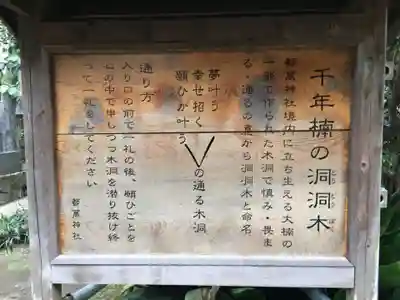 千年楠の洞洞木
都萬神社境内に立ち生える大楠の
一部で作られた木洞で慎み・畏ま
る・通るの意から洞洞木と命名
夢叶う
幸せ招く
願ひが叶う
の通る木洞
通り方
入り口の前で一礼の後、願ひごとを
心の中で申しつつ木洞を潜り抜け終
って一礼をしてください
都萬神社